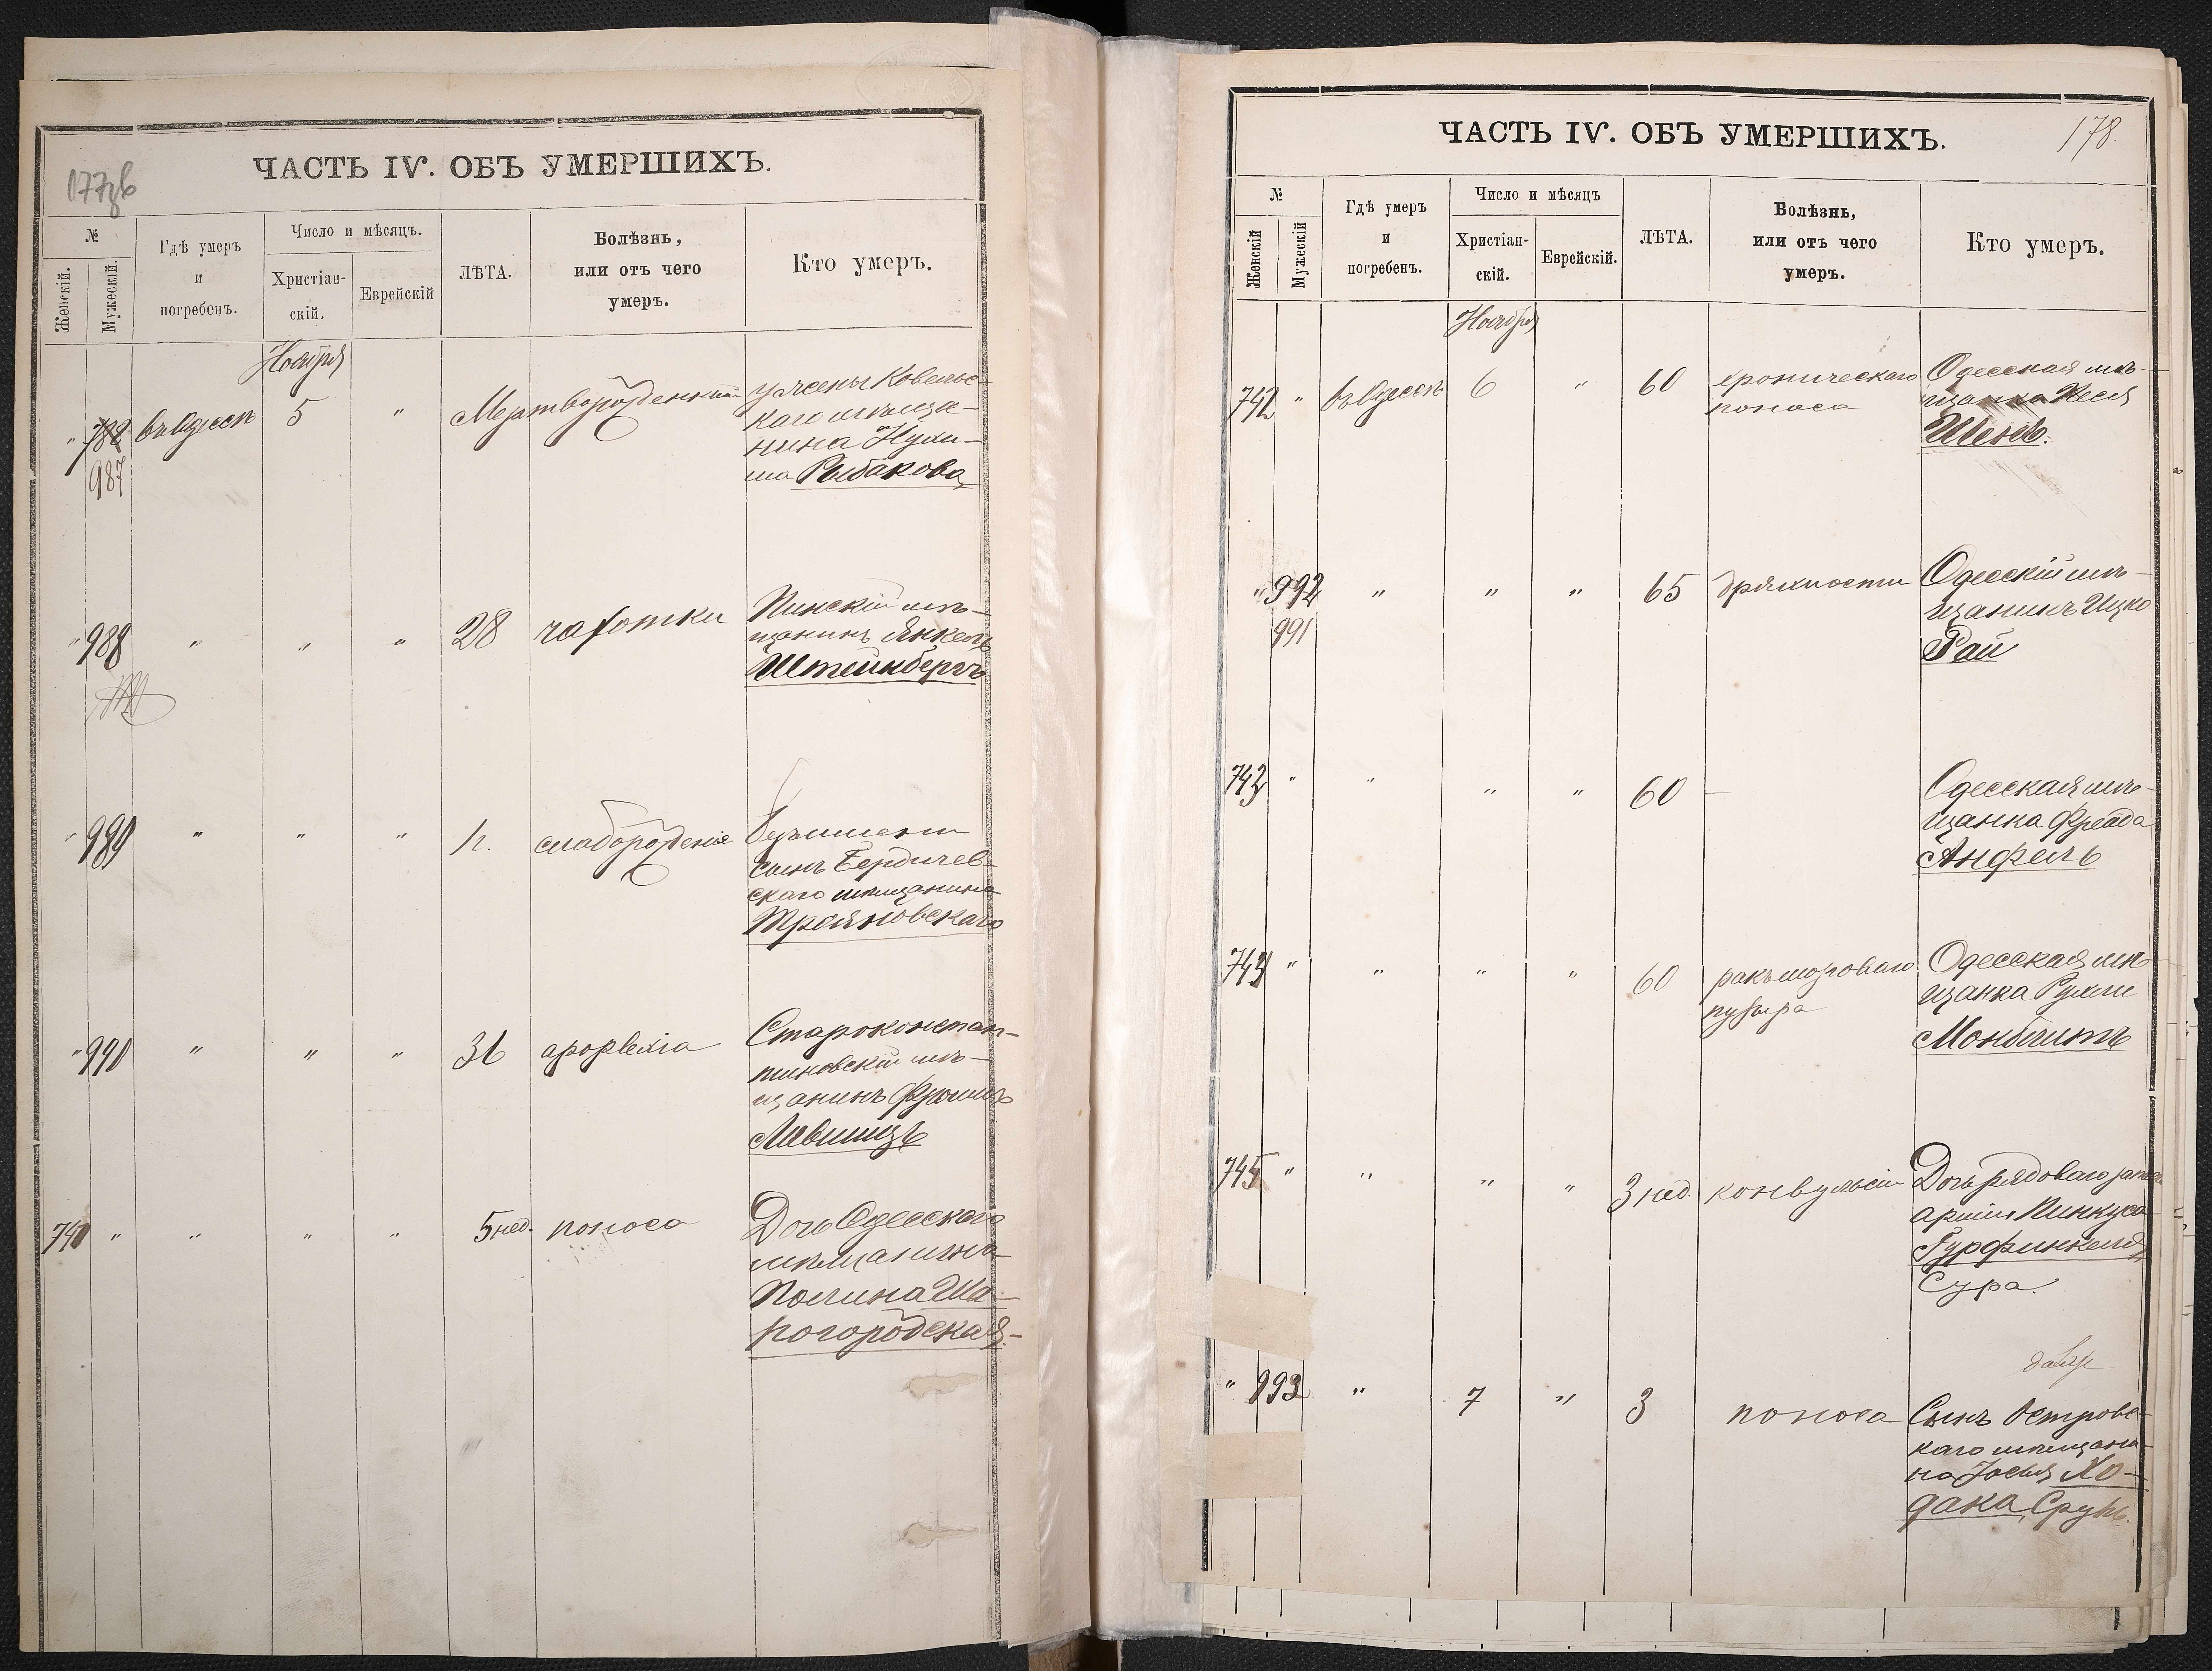 177зв
ЧАСТЬ IV. ОБЪ УМЕРШИХЪ.
№
Женскій.
Мужескій.
Гдѣ умеръ
и
погребенъ.
Число и мѣсяцъ.
Христіан-
скій.
Еврейскій
ЛѢТА.
Болѣзнь,
или отъ чего
умеръ.
Кто умеръ.
Ноября
" 788 въ Одессѣ 5 " Мертворожденный у жены Ковельс-
987
каго мѣща-
нина Нухи-
ма Рыбакова
" 988 " " " 28 чахотки Пинскій мѣ-
щанинъ Янкель
Штейнбергъ
" 989 " " " слаборожденія Безъимени
сынъ Бердичев-
скаго мѣщанина
Трояновскаго
" 990 " " " 36 Староконстан-
тиновскій мѣ-
щанинъ
740 " " " " 5 нед. поноса Дочь Одесскаго
мѣщанина
Полина Ша-
рогородская.
178.
ЧАСТЬ IV. ОБЪ УМЕРШИХЪ.
№
Женскій
Мужескій
Гдѣ умеръ
и
погребенъ.
Число и мѣсяцъ
Христіан-
скій.
Еврейскій.
ЛѢТА.
Болѣзнь,
или отъ чего
умеръ.
Кто умеръ.
Ноября
742 " въ Одессѣ 6 " 60 хроническаго поноса Одесская мѣ-
щанка
" 992 " " " 65 дряхлости Одесскій мѣ-
991
щанинъ Ицко
Рай
743 " " " " 60 — Одесская мѣ-
щанка Фрейда
Анфель
744 " " " " 60 ракъ мочеваго пузыря Одесская мѣ-
щанка Рухля
Монблитъ
745 " " " " 3 нед. конвульсіи Дочь рядоваго
арміи Пинкуса
Гурфинкеля
Сура.
" 993 " 7 " 3 поноса Сынъ Островс-
каго мѣщани-
на Іоселя Хо-
дака, Сруль.